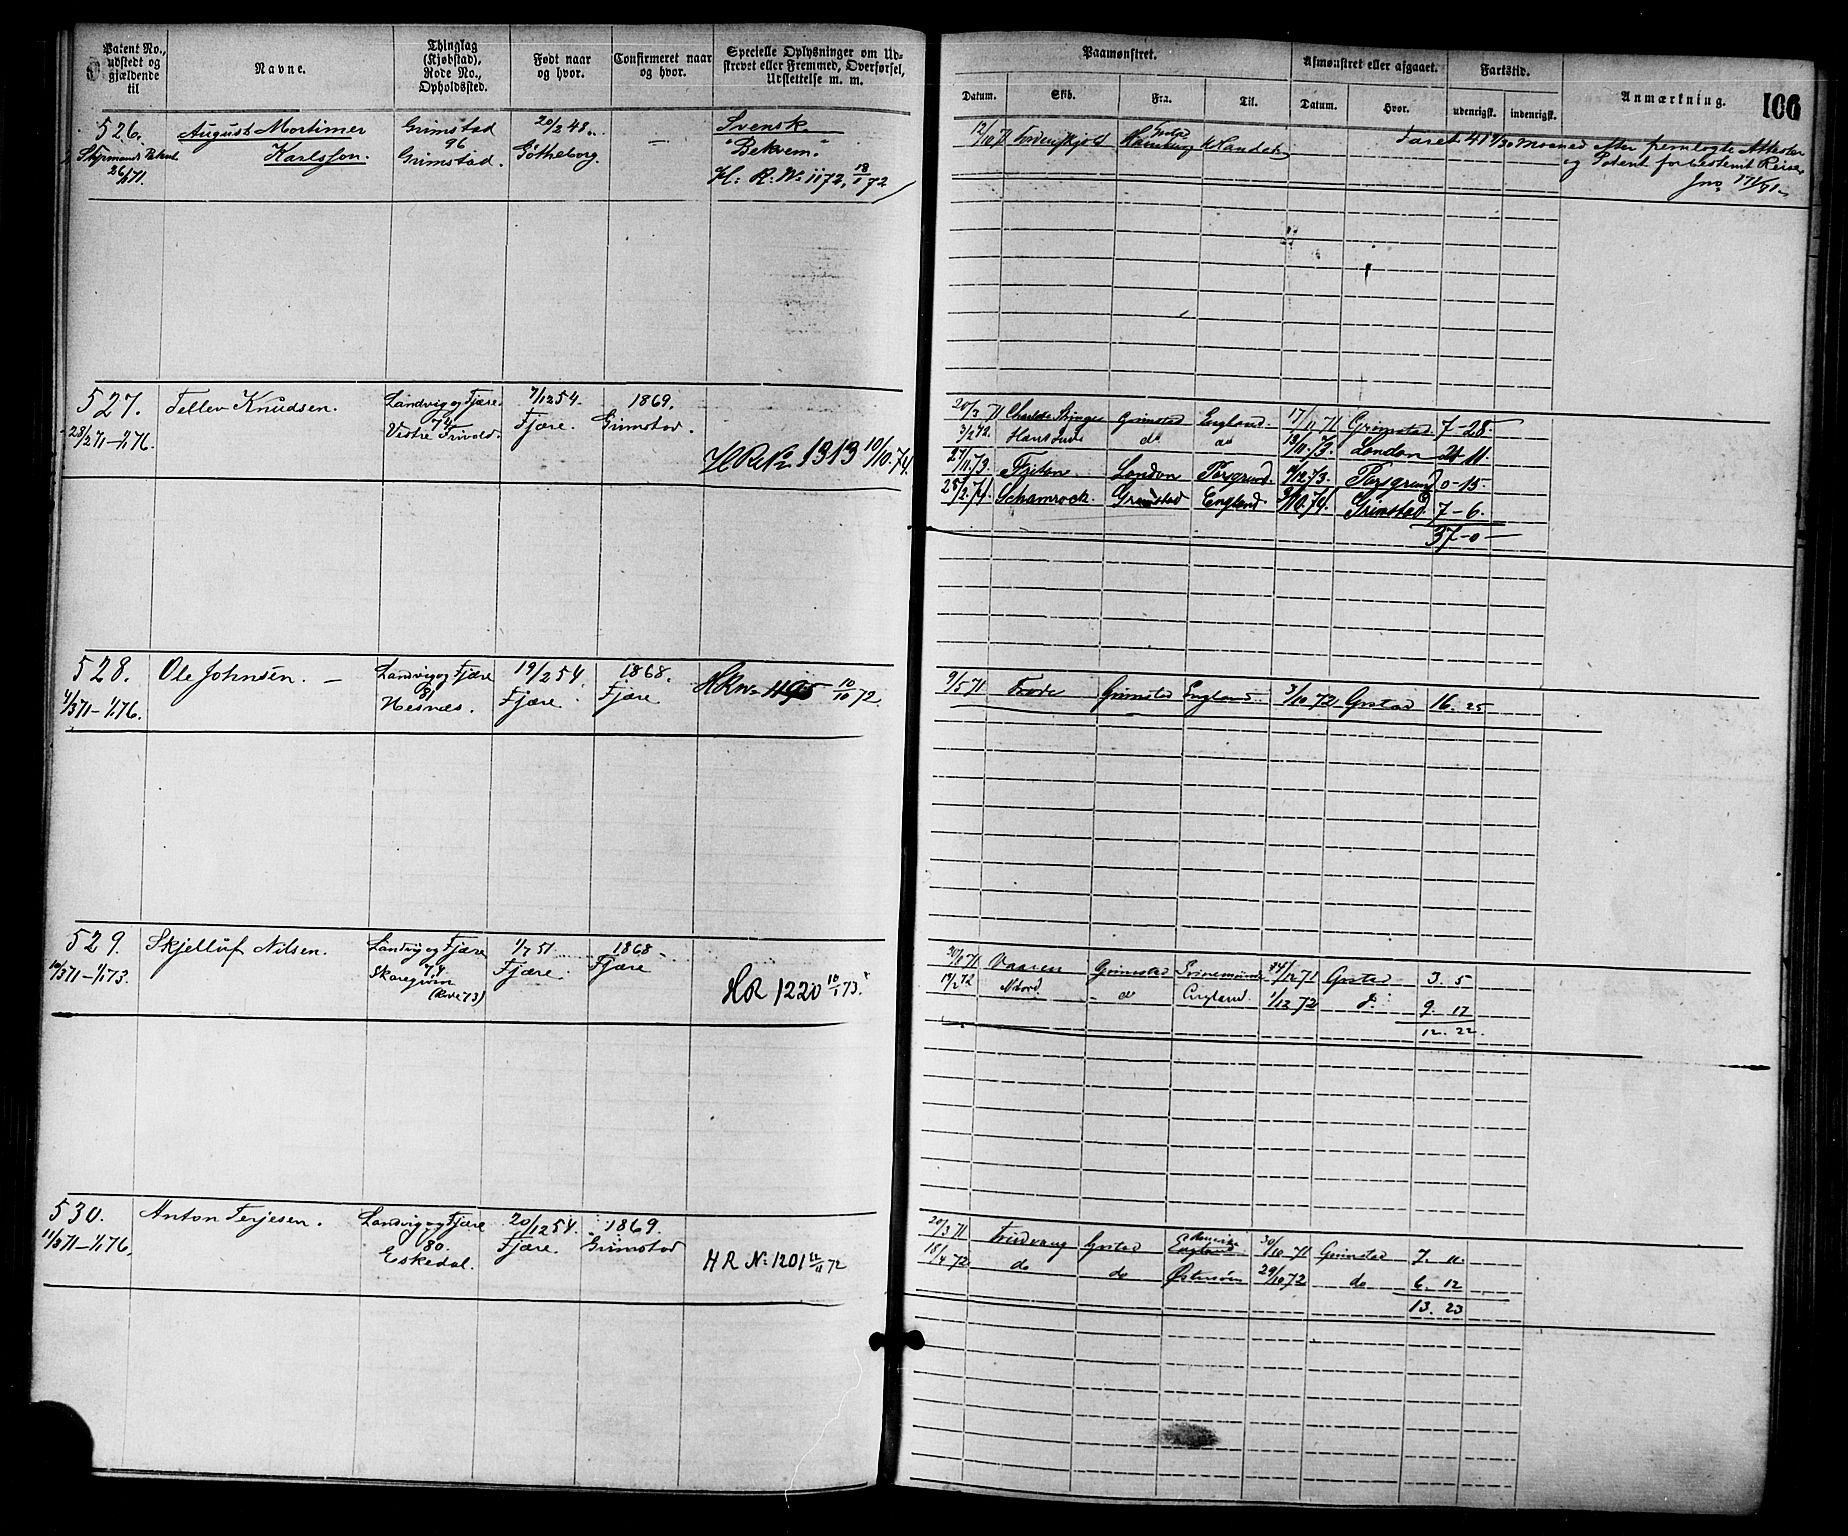 Patent No., udstedt og gjældende til
Navne.
Thinglag (Kjøbstad), Rode No., Opholdssted.
Født naar og hvor.
Confirmeret naar og hvor.
Specielle Oplysninger om Udskrevet eller Fremmed, Overførsel, Udslettelse m. m.
Paamønstret.
Afmønstret eller afgaaet.
Fartstid.
Anmærkning.
106
Datum.
Skib.
Fra.
Til.
Datum.
Hvor.
udenrigsk.
indenrigsk.
526.
Styrmands Patent
26/1 71.
August Mortimer
Karlsson.
Grimstad
96
Grimstad.
20/2 48.
Gøtheborg.
—
Svensk.
"Bekvem."
H: R: No 1172, 18/1 72
12/10 71
Hamburg
Faret 41 4/30 Maaned efter fremlagte Attester
og Patent for bestemt Reise
Jno 171/71
527.
28/2 71 - 1/1 76.
Tellev Knudsen.
Landvig og Fjære.
74
Vestre Trivold.
7/12 54.
Fjære.
1869.
Grimstad.
H R No 1313 10/10 74.
20/3 71 Grimstad England. 17/11 71 Grimstad 7-28.
3/2 72. do do 13/11 73. London 21 11.
27/11 73. Triton London Porsgrund 4/12 73. Porsgrund 0-15.
25/2 74. Schamrock. Grimstad England 9/10 74. Grimstad 7-6.
37-0
528.
4/3 71 - 1/1 76.
Ole Johnsen. —
Landvig og Fjære
81
Hesnes.
19/2 54.
Fjære.
1868.
Fjære
H R No 1195 10/10 72
9/5 71 Frode Grimstad England. 3/10 72 Grstad 16. 25
529.
10/3 71 - 1/1 73.
Skjelluf Nilsen.
Landvig og Fjære
78
(Rode 73)
1/7 51.
Fjære.
1868
Fjære
H R 1220 10/1 73.
Vaaren Grimstad Svinemünde 24/12 71 Grstad 3. 5
19/2 72 do England. 1/12 72 do 9. 17
12. 22.
530.
11/3 71 - 1/1 76.
Anton Terjesen.
Landvig og Fjære
80.
Eskedal.
20/12 54.
Fjære.
1869.
Grimstad
H R No 1201 12/11 72
20/3 71 Fredvang Grstad England 30/10 71 Grimstad 7. 11.
18/4 72 do do Østersøen 29/10 72 do 6. 12
13. 23